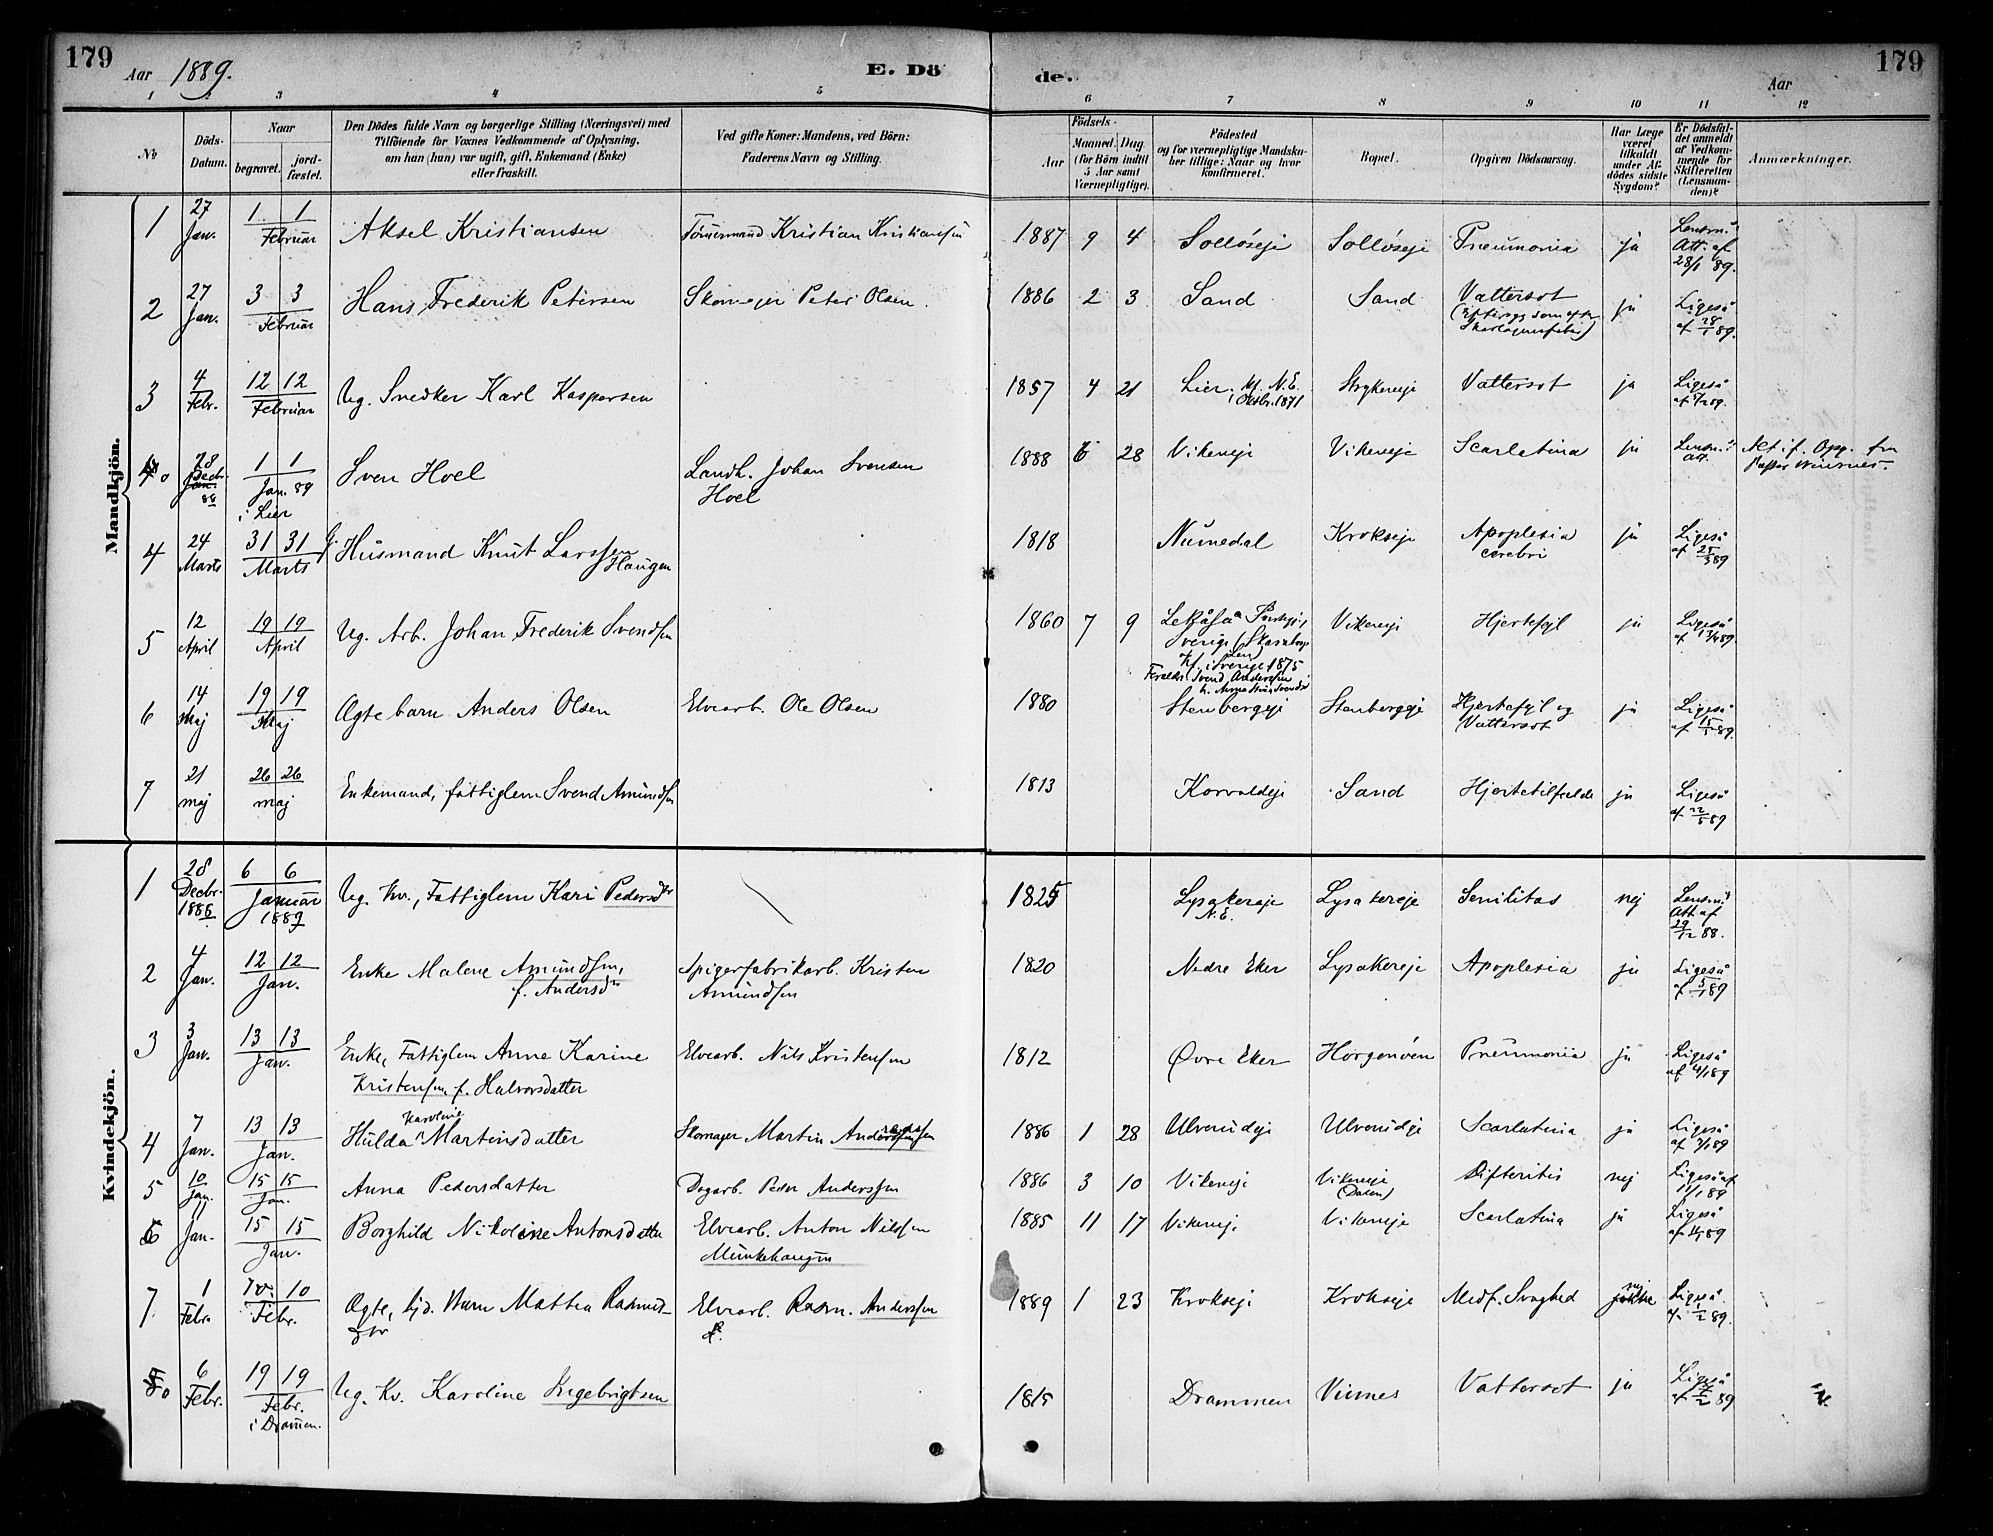 179
Aar 1889.
E. Dö
de.
Aar
179
1 2 3 4 5 6 7 8 9 10 11 12
No
Döds-Datum.
Naar
begravet.
jord-fæstet.
Den Dödes fulde Navn og borgerlige Stilling (Næringsvei) med
Tilföiende for Voxnes Vedkommende af Oplysning,
om han (hun) var ugift, gift, Enkemand (Enke)
eller fraskilt.
Ved gifte Koner: Mandens, ved Börn:
Faderens Navn og Stilling.
Födsels-
Aar
Maaned. Dag.
(for Börn indtil
5 Aar samt
Værnepligtige).
Födested
og for værnepligtige Mandska-
ber tillige: Naar og hvor
konfirmeret.
Bopæl.
Opgiven Dödsaarsag.
Har Læge
været
tilkaldt
under Af-
dödes sidste
Sygdom?
Er Dödsfal-
det anmeldt
af Vedkom-
mende for
Skifteretten
(Lensman-
den)?
Anmærkninger.
Mandkjön.
1 27 Jan. 1 1 Februar Aksel Kristiansen Tömermand Kristian Kristiansen 1887 9 4 Sollöseje Sollöseje Pneumonia ja Lensm. Att. af 28/1 89.
2 27 Jan. 3 3 Februar Hans Frederik Petersen Skomager Peter Olsen. 1886 2 3 Sand Sand Vattersot ja Ligeså af 28/1 89.
3 4 Febr. 12 12 Februar Ug. Snedker Karl Kaspersen 1857 4 21 Lier, kf. N.E. Oktbr. 1871 Vattersot ja Ligeså
0 28 Decbr. 88 1 1 Jan. 89 i Lier Sven Hoel Landh. Johan Svensen Hoel 1888 6 28 Vikereje Vikereje Scarlatina ja Lensm. Att. Act. if. Opg. fra Pastor
4 24 Marts 31 31 Marts G. Husmand Knut Larssen Haugen 1818 Numedal Krokseje Apoplexia cerebri ja Ligeså af 25/3 89
5 12 April 19 19 April Ug. Arb. Johan Frederik Svendsen 1860 7 9 Sverige kf. i Sverige 1875 Vikereje Hjertefejl ja Ligeså
Forældre Svend Anderssen
6 14 Maj 19 19 Maj Ægte barn Anders Olsen Elvearb. Ole Olsen 1880 Stenbergeje Stenbergeje Hjertefejl og Vattersot ja Ligeså af 15/5 89.
7 21 maj 26 26 maj Enkemand, fattiglem Svend Amundsen 1813 Korvaldeje Sand Hjertetilfælde ja Ligeså af 22/5 89
Kvindekjön.
1 28 Decbr. 1888 6 6 Januar 1889 Ug. kv., Fattiglem Kari Pedersdtr 1825 Lysakereje N.E. Lysakereje Senilitas nej Lensm. Att. af 29/12 88.
2 4 Jan. 12 12 Jan. Enke Malene Amundsen, f. Andersdtr Spigerfabrikarb. Kristen Amundsen 1820 Nedre Eker Lysakereje Apoplexia ja Ligeså af 5/1 89
3 3 Jan. 13 13 Jan. Enke, Fattiglem Anne Karine Kristensen, f. Halvorsdatter Elvearb. Nils Kristensen 1812 Øvre Eker Horgenöen Pneumonia ja Ligeså af 4/1 89
4 7 Jan. 13 13 Jan. Hulda Karoline Martinsdatter Skomager Martin 1886 1 28 Ulverudeje Ulverudeje Scarlatina ja Ligeså af 7/1 89
5 10 Jan. 15 15 Jan. Anna Pedersdatter Dagarb. Peder Anderssen 1886 3 10 Vikereje Vikereje (Dalen) Difteritis nej Ligeså af 11/1 89
6 11 Jan. 15 15 Jan. Borghild Nikoline Antonsdatter Elvearb. Anton Nilssen Munkehaugen 1885 11 17 Vikereje Vikereje Scarlatina ja Ligeså
7 1 Febr. 10 10 Febr. Ægte, hjd. Barn Mathea Rasmusdtr Elvearb. Rasm. Anderssen 1889 1 23 Krokseje Krokseje Medf. Svaghed nej Ligeså af 1/2 89.
0 6 Febr. 19 19 Febr. i Drammen. Ug. Kv. Karoline Ingebrigtsen 1815 Drammen Vinnes Vattersot ja Ligeså